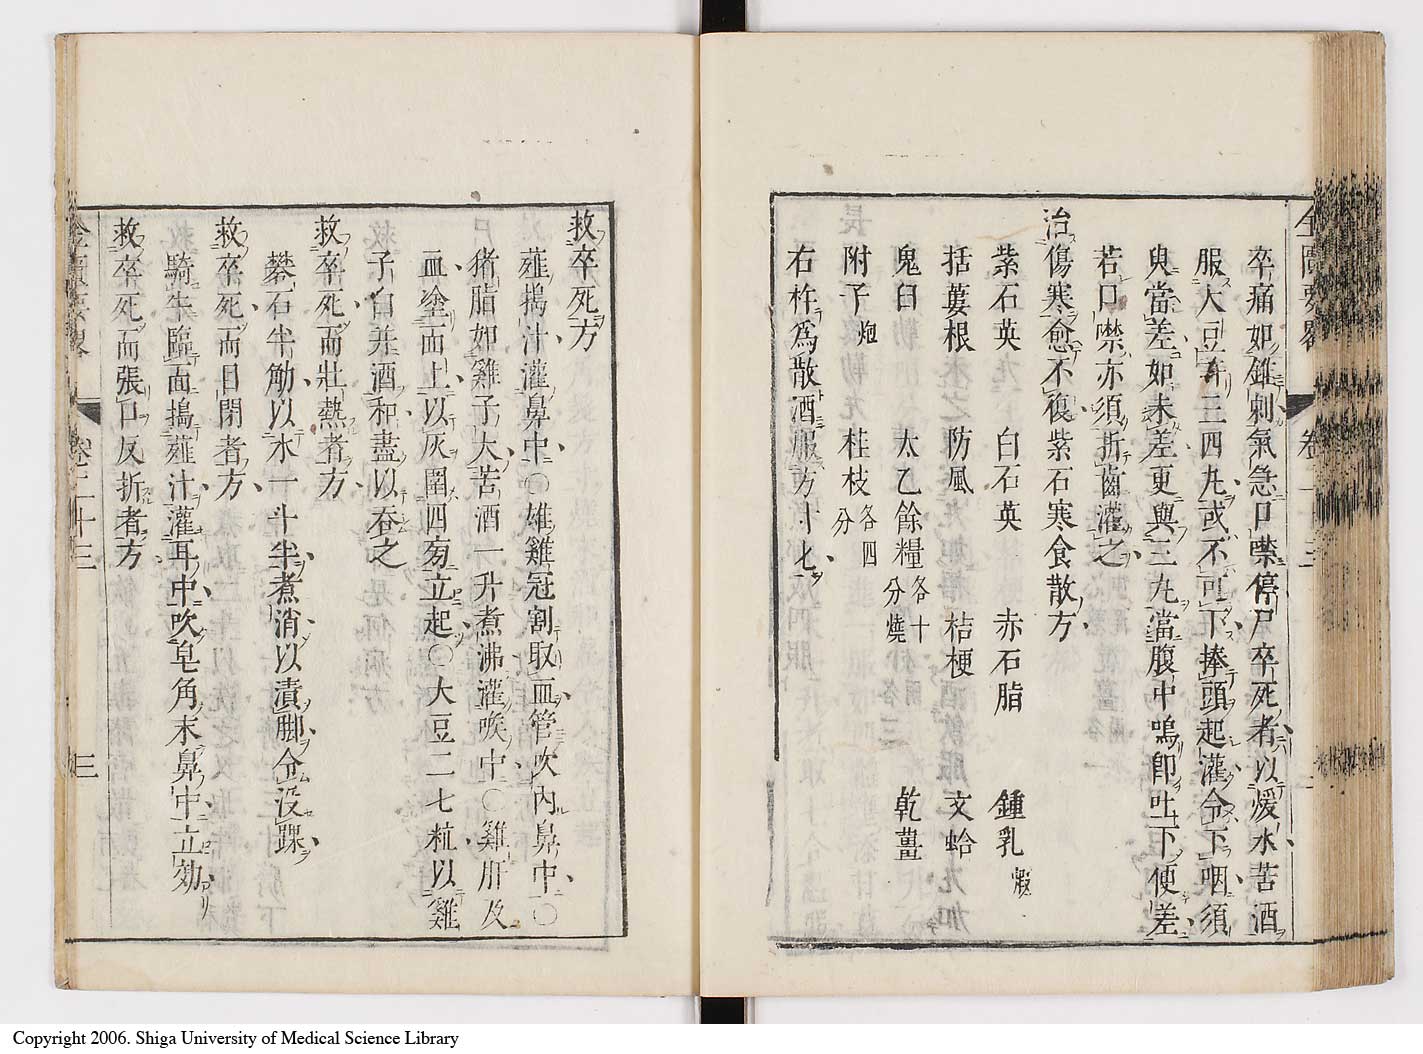 卒痛如錐刺氣急口噤停尸卒死者以煖水苦酒
服大豆許三四丸或不可下捧頭起灌令下咽須
臾當差如未差更與三丸當腹中鳴即吐下便差
若口噤亦須折齒灌之
治傷寒愈不復紫石寒食散方
紫石英 白石英 赤石脂 鍾乳
括蔞根 防風 桔梗 文蛤
鬼臼 太乙餘糧各十分燒 乾薑
附子炮 桂枝各四分
右杵爲散酒服方寸匕
救卒死方
薤搗汁灌鼻中○雄雞冠割取血管吹內鼻中○
猪脂如雞子大苦酒一升煮沸灌喉中○雞肝及
血塗面上以灰圍四匊立起○大豆二七粒以雞
子白并酒和盡以吞之
救卒死而壯熱者方
礬石半觔以水一斗半煮消以漬脚令沒踝
救卒死而目閉者方
騎牛臨面搗薤汁灌耳中吹皂角末鼻中立効
救卒死而張口反折者方
卷二十三 三
Copyright 2006. Shiga University of Medical Science Library